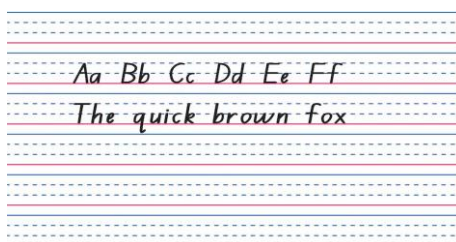 Aa Bb Cc Dd Ee Ff
The quick brown fox